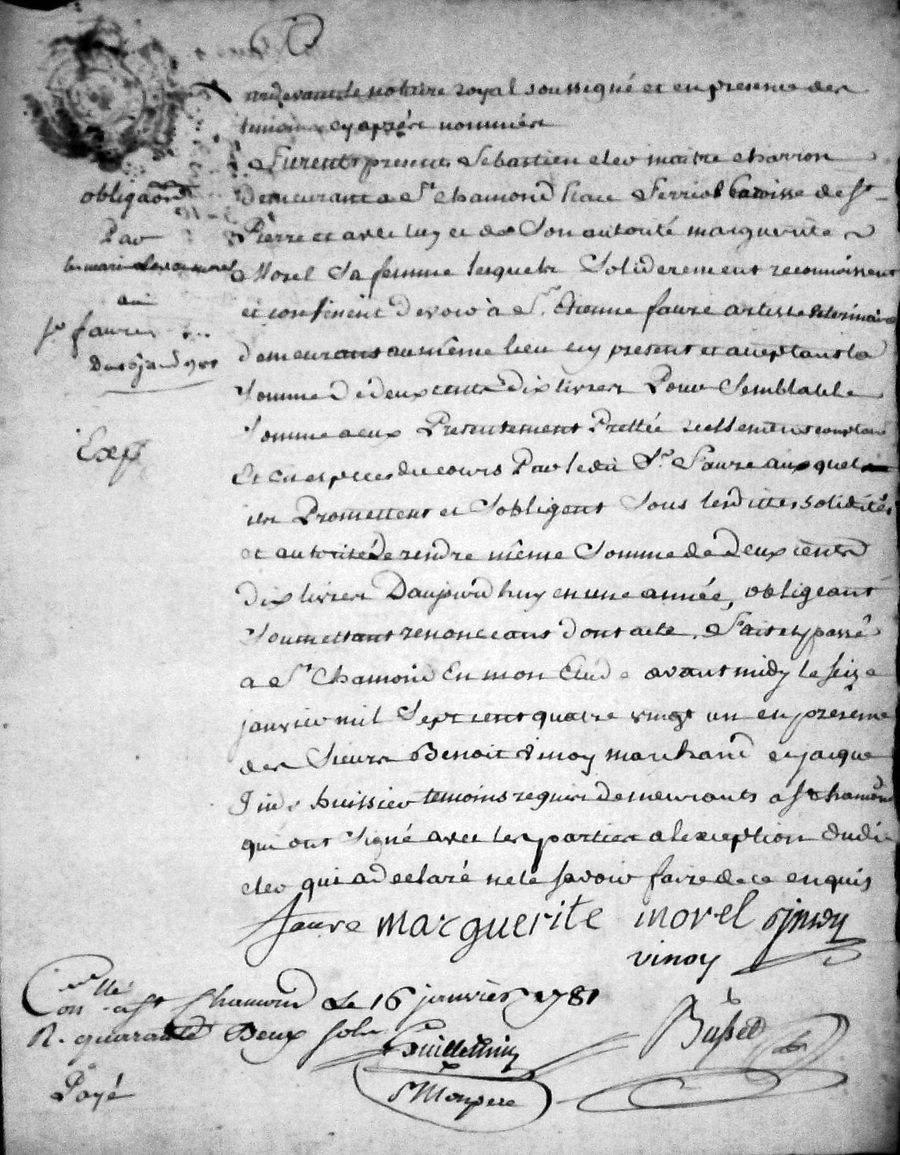 pardevant le notaire royal soussigné et en presence des
temoins cy aprés nommés
Furent presents Sebastien cler maitre charron
demeurant a St. chamond place Ferriol Paroisse de St.
Pierre et avec luy et de Son autorité marguerite
Morel Sa femme lesquels Soliderement reconnoissent
et confessent devoir à Sr. Etienne faure artiste veterinaire
demeurant au même lieu cy present et acceptant la
Somme de deux cents dix livres Pour Semblable
Somme a eux Presentement Prettée réellement comptant
Et en especes du cours Par ledit Sr. Faure auxquel
ils Promettent et S'obligent Sous lesdittes solidités
et autorité de rendre même Somme de deux cents
dix livres D'aujourd'huy en une année, obligeant
Soumettant renonceant dont acte. Fait et passé
a St. Chamond En mon Etude avant midy le seize
janvier mil Sept cent quatre vingt un en presence
des Sieurs Benoit vinoy marchand et jacque
huissier temoins requis demeurants a St. chamond
qui ont Signé avec les parties a lexception dudit
cler qui a declaré ne le savoir faire de ce enquis
obligaôn
Par
les mariés cler et morel
au
Sr faure
Du 16 janv. 1781
Exp
faure marguerite morel
vinoy
Con.lle a St. Chamond Le 16 janvier 1781
R. quarante Deux sols
Guillermin
Payé
St Monpere